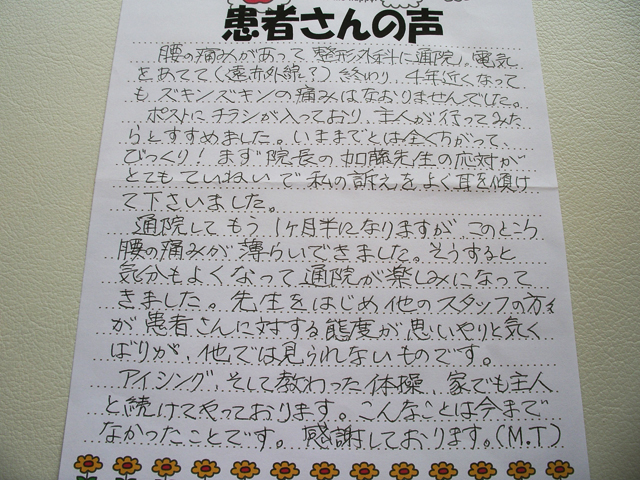 患者さんの声
腰の痛みがあって整形外科に通院し電気
をあてて(遠赤外線?)終わり、4年近くなって
もズキンズキンの痛みはなおりませんでした。
ポストにチラシが入っており、主人が行ってみた
らとすすめました。いままでとは全くちがって、
びっくり!まず院長の加藤先生の応対が
とてもていねいで私の訴えをよく耳を傾け
て下さいました。
通院してもう1ヶ月半になりますが、このところ
腰の痛みが薄らいできました。そうすると
気分もよくなって通院が楽しみになって
きました。先生をはじめ他のスタッフの方々
が患者さんに対する態度が思いやりと気く
ばりが、他では見られないものです。
アイシング、そして教わった体操、家でも主人
と続けてやっております。こんなことは今まで
なかったことです。感謝しております。(M.T)